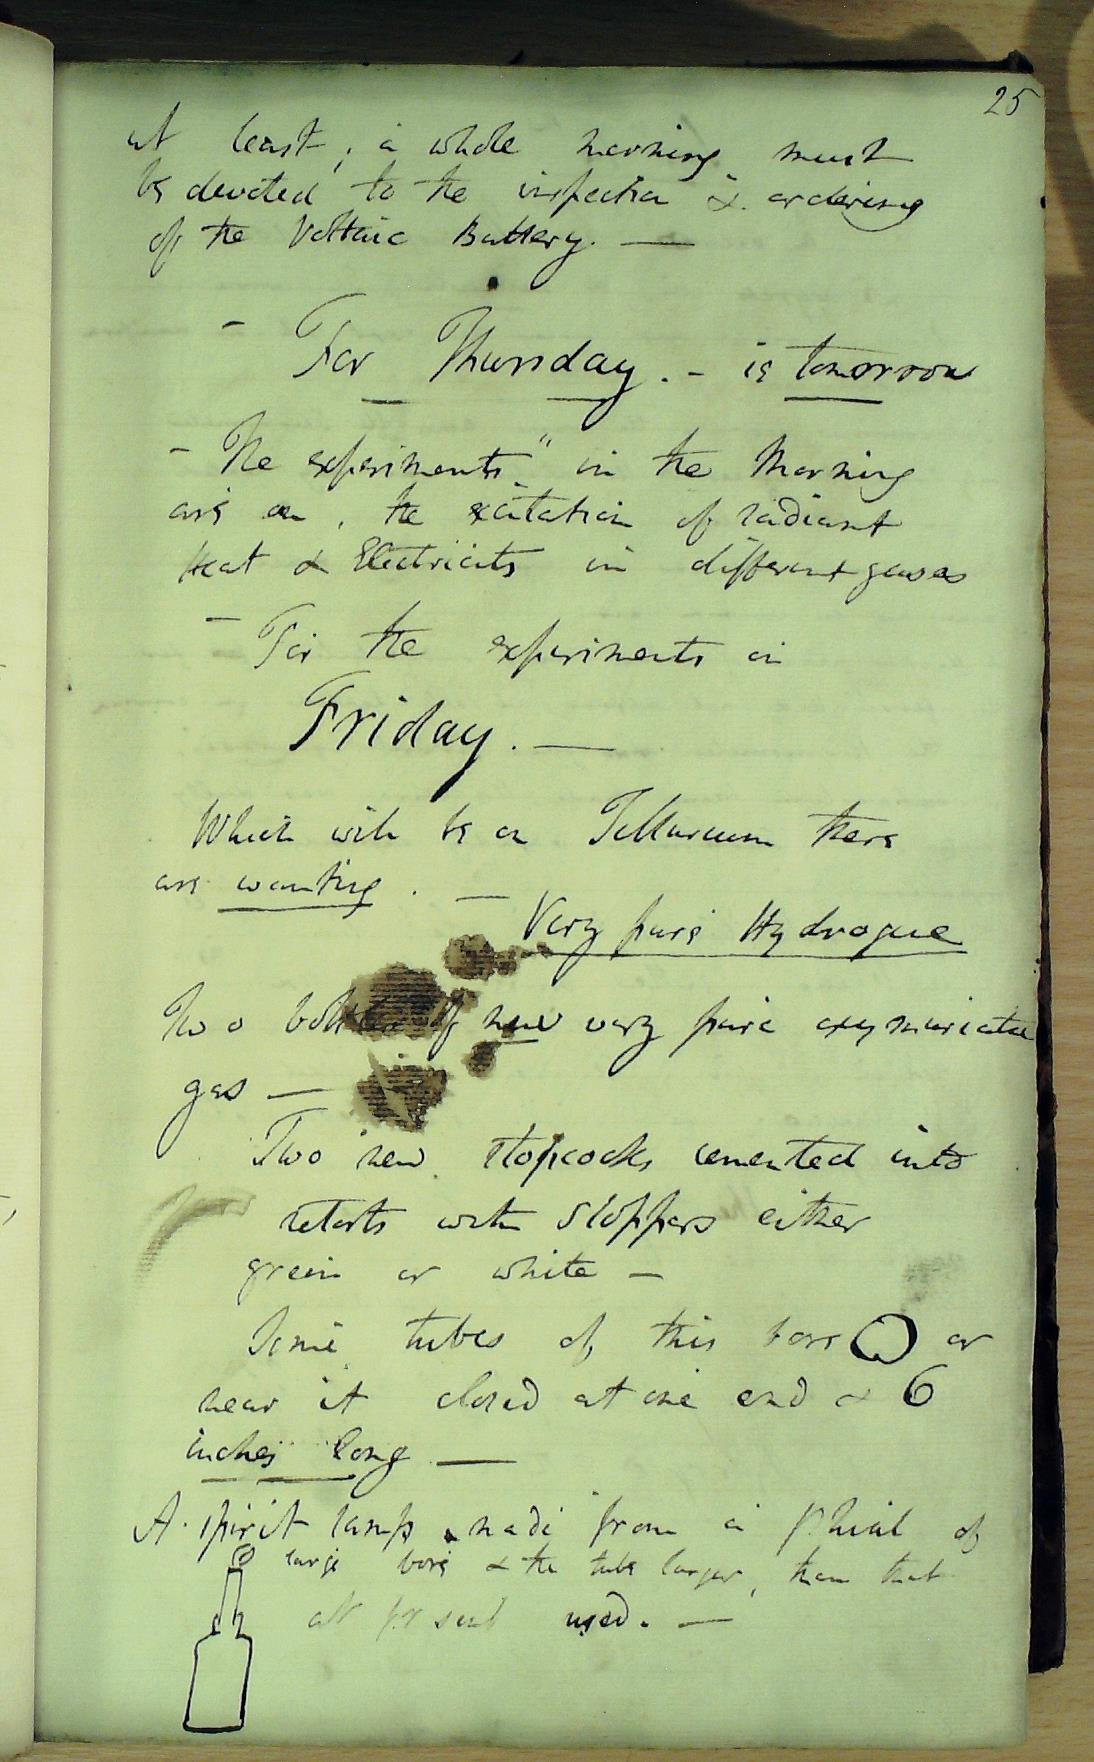 25
at least, a whole morning must
be devoted to the inspection & ordering
of the Voltaic Battery. —
- For Thursday. - is tomorrow
- The experiments in the Morning
are on, the excitation of radiant
Heat & Electricity in different gases
- For the experiments on
Friday. —
Which will be on Tellurium there
are wanting. —
Very pure Hydrogene
Two bottles of new very pure oxymuriatic
gas —
Two new stopcocks cemented into
retorts with stoppers either
green or white —
Some tubes of this bore O or
near it closed at one end & 6
inches long —
A spirit lamp made from a phial of
large bore & the tube larger, than that
at present used. —